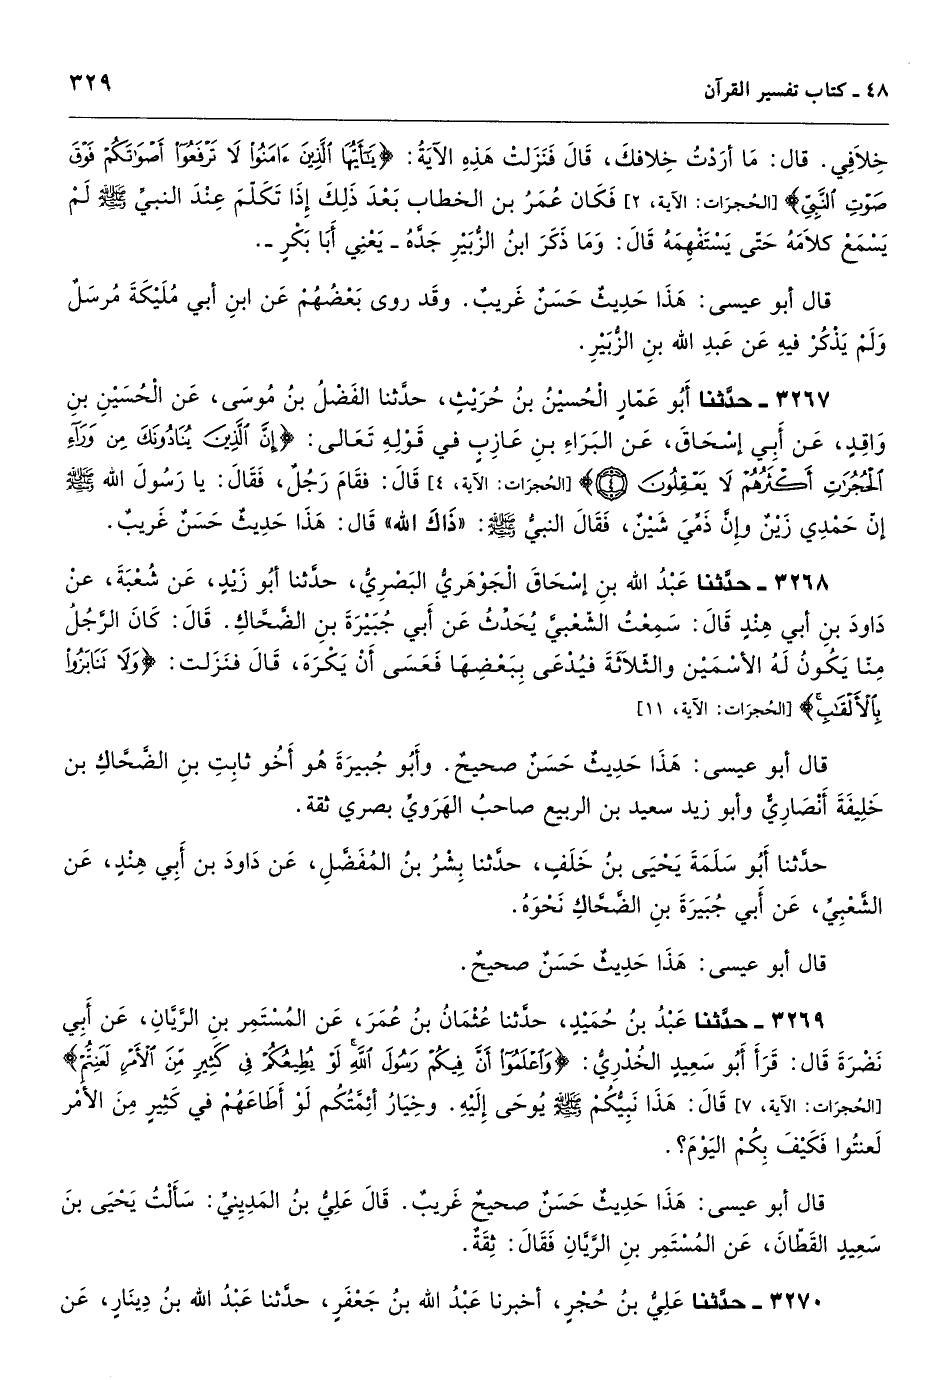 ٤٨ ـ كتاب تفسير القرآن
٣٢٩
خِلاَفِي. قال: مَا أرَدْتُ خِلافكَ، قَالَ فَنَزلتْ هَذِهِ الآيَةُ: ﴿يَٰٓأَيُّهَا ٱلَّذِينَ ءَامَنُوا۟ لَا تَرْفَعُوٓا۟ أَصْوَٰتَكُمْ فَوْقَ
صَوْتِ ٱلنَّبِيِّ﴾ [الحُجرَات: الآية، ٢] فَكَان عُمَرُ بن الخطاب بَعْدَ ذَلِكَ إِذَا تَكَلّمَ عِنْدَ النبيِّ ﷺ لَمْ
يَسْمَعْ كلاَمَهُ حَتّى يَسْتَفْهِمَهُ قَالَ: وَمَا ذَكَرَ ابنُ الزُّبَيْرِ جَدَّهُ ـ يَعْنِي أَبَا بَكْرٍ ـ.
قال أبو عيسى: هَذَا حَدِيثٌ حَسَنٌ غَرِيبٌ. وقَد روى بَعْضُهُمْ عَن ابنِ أبي مُلَيْكَةَ مُرسَلٌ
وَلَمْ يَذْكُرْ فيهِ عَن عَبدِ الله بنِ الزُّبَيْرِ.
٣٢٦٧ ـ حدَّثنا أَبُو عَمَّارٍ الْحُسيْنُ بنُ حُرَيْثٍ، حدّثنا الفَضْلُ بنُ مُوسَى، عَن الْحُسَيْنِ بنِ
وَاقِدٍ، عَن أَبي إسْحَاقَ، عَن البَرَاءِ بنِ عَازِبٍ في قَوْلِهِ تَعَالى: ﴿إِنَّ ٱلَّذِينَ يُنَادُونَكَ مِن وَرَآءِ
ٱلْحُجُرَٰتِ أَكْثَرُهُمْ لَا يَعْقِلُونَ ۝٤﴾ [الحُجرَات: الآية، ٤] قَالَ: فقَامَ رَجُلٌ، فَقَالَ: يا رَسُولَ الله ﷺ
إنّ حَمْدِي زَيْنٌ وإنَّ ذَمِّيَ شَيْنٌ، فَقَالَ النبيُّ ﷺ: «ذَاكَ الله» قَال: هَذَا حَدِيثٌ حَسَنٌ غَرِيبٌ.
٣٢٦٨ ـ حدَّثنا عَبْدُ الله بنِ إسْحَاقَ الْجَوْهَرِيُّ البَصْرِيُّ، حدّثنا أبُو زَيْدٍ، عَن شُعْبَةَ، عنْ
دَاودَ بنِ أبي هِنْدٍ قَالَ: سَمِعْتُ الشّعْبيَّ يُحَدّثُ عَن أَبي جُبَيْرَةَ بنِ الضَّحَّاكِ. قَالَ: كَانَ الرَّجُلُ
مِنّا يَكُونُ لَهُ الأسْمَيْن والثّلاَثَةَ فَيُدْعَى بِبَعْضِهَا فَعَسَى أَنْ يَكْرَهَ، قَالَ فنَزَلت: ﴿وَلَا نَنَابَزُوا۟
بِٱلْأَلْقَٰبِ﴾ [الحُجرَات: الآية، ١١]
قال أبو عيسى: هَذَا حَدِيثٌ حَسَنٌ صحيحٌ. وأَبُو جُبيرَةَ هُو أَخُو ثابِتِ بنِ الضَّحَّاكِ بن
خَلِيفَةَ أَنْصَارِيُّ وأبو زيد سعيد بن الربيع صاحبُ الهَرَويِّ بصري ثقة.
حدّثنا أَبُو سَلَمَةَ يَحْيَى بنُ خَلَفٍ، حدّثنا بِشْرُ بنُ المُفَضَّلِ، عَن دَاودَ بن أَبِي هِنْدٍ، عَن
الشَّعْبِيِّ، عَن أَبي جُبَيَرَةَ بنِ الضَّحَّاكِ نَحْوَهُ.
قال أبو عيسى: هَذَا حَدِيثٌ حَسَنٌ صحيحٌ.
٣٢٦٩ ـ حدَّثنا عَبْدُ بنُ حُمَيْدٍ، حدّثنا عُثْمَانُ بنُ عُمَرَ، عَن المُسْتَمِر بنِ الرَّيَّانِ، عَن أَبي
نَضْرَةَ قَال: قَرَأَ أَبُو سَعِيدٍ الخُدْرِيُّ: ﴿وَٱعْلَمُوٓا۟ أَنَّ فِيكُمْ رَسُولَ ٱللَّهِ لَوْ يُطِيعُكُمْ فِى كَثِيرٍ مِّنَ ٱلْأَمْرِ لَعَنِتُّمْ﴾
[الحُجرَات: الآية، ٧] قَالَ: هَذَا نَبِيُّكُمْ ﷺ يُوحَى إلَيْهِ. وخِيَارُ أئِمَّتُكُم لَوْ أَطَاعَهُمْ في كَثِيرٍ مِنَ الأمْر
لَعنتُوا فَكَيْفَ بِكُمْ اليَوْمَ؟.
قال أبو عيسى: هَذَا حَدِيثٌ حَسَنٌ صحيحٌ غَرِيبٌ. قَالَ عَلِيُّ بنُ المَدِينِيِّ: سَأَلْتُ يَحْيَى بنَ
سَعِيدٍ القَطّانَ، عَن المُسْتَمِر بنِ الرَّيَّانِ فَقَالَ: ثِقَةٌ.
٣٢٧٠ ـ حدَّثنا عَلِيُّ بنُ حُجْرٍ، أخبرنا عَبْدُ الله بنُ جَعْفَرٍ، حدّثنا عَبْدُ الله بنُ دِينَارٍ، عَن